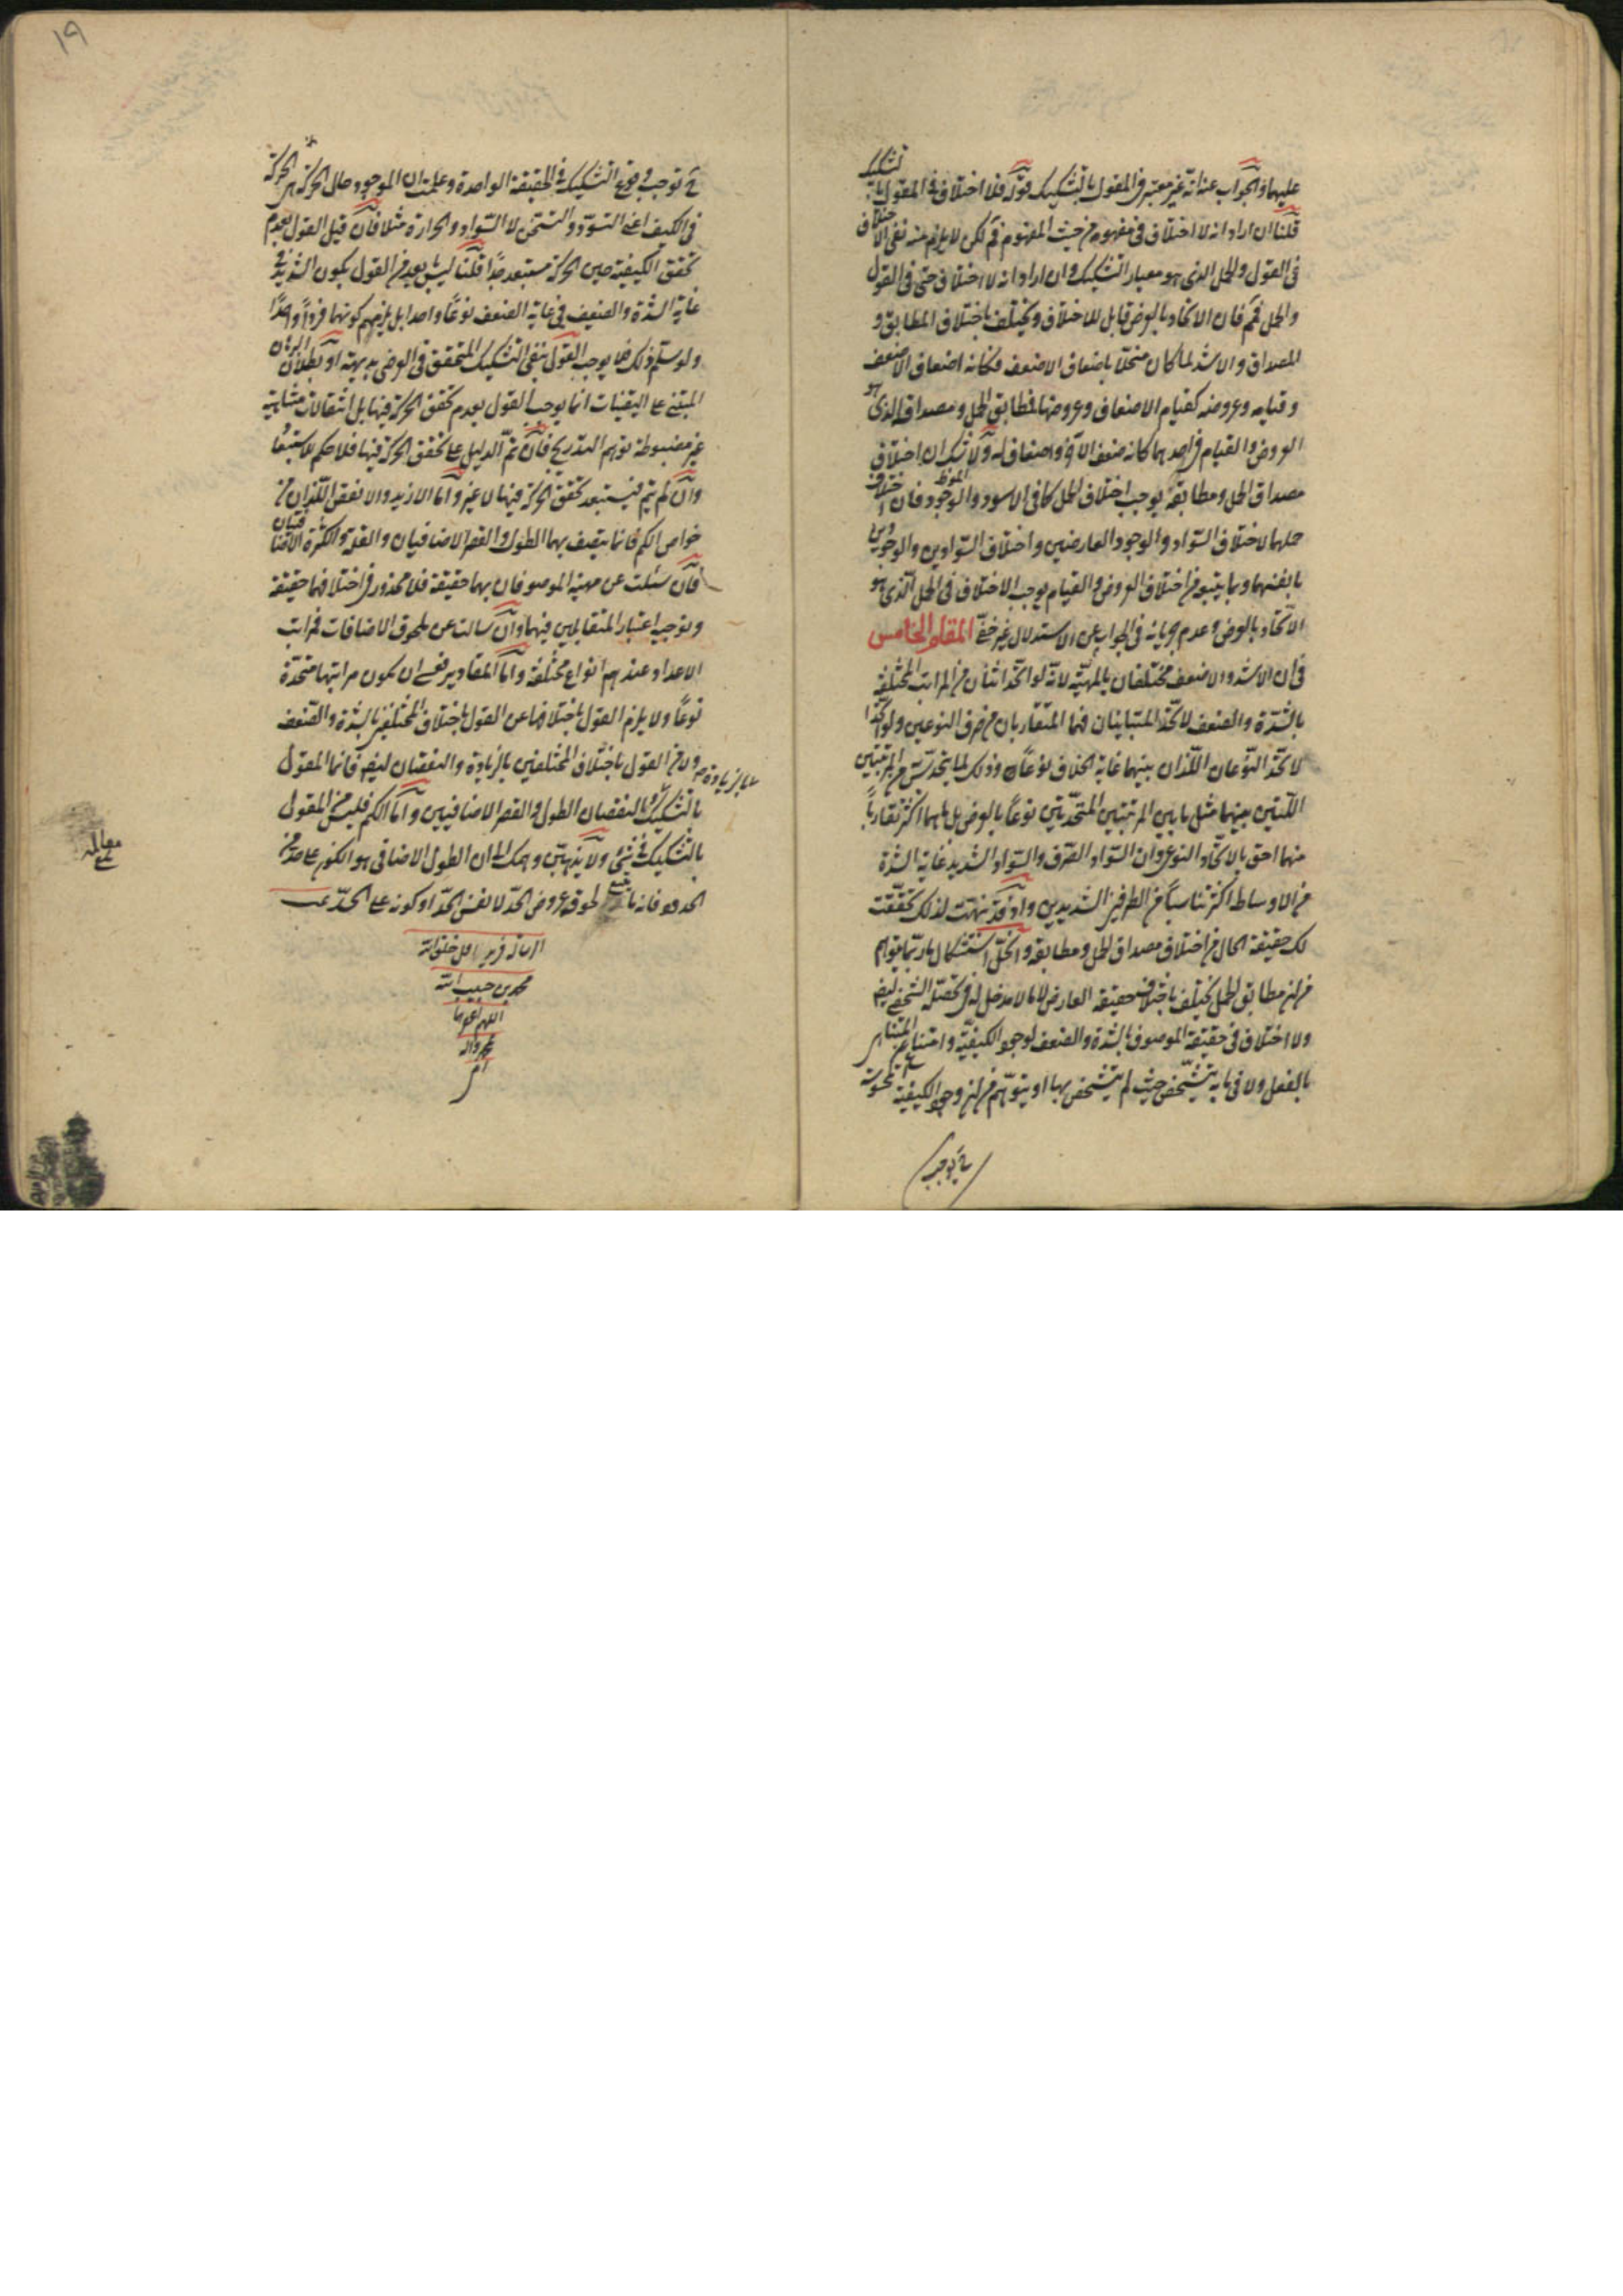 عليها والجواب عنه انه غير معتبر في المقول بالتشكيك قوله فلا اختلاف في المقول بالتشكيك
قلنا ان اراد انه لا اختلاف في مفهومه من حيث المفهوم فم لكن لا يلزم منه نفي الاختلاف
في القول والحمل الذي هو معيار التشكيك وان اراد انه لا اختلاف حتى في القول
والحمل فمم فان الاتحاد بالعرض قابل للاختلاف ويختلف باختلاف المطابق و
المصداق والاشد لما كان منحلا باضعاف الاضعف فكانه اضعاف الاضعف
وقيامه وعروضه كقيام الاضعاف وعروضها فمطابق الحمل ومصداقه الذي هو
العروض والقيام في احدهما كانه ضعف الآخر واضعاف له ولا شك ان اختلاف
مصداق الحمل ومطابقه يوجب اختلاف الحمل كما في الاسود والموجود فان اختلاف
حملهما لاختلاف السواد والوجود العارضين واختلاف السوادين والوجودين
بانفسهما وبما يتبعه من اختلاف العروض والقيام يوجب الاختلاف في الحمل الذي هو
الاتحاد بالعرض وعدم جريانه في الجواب عن الاستدلال غير خفي المقام الخامس
في ان الاشد والاضعف مختلفان بالمهية لانه لو اتحد اثنان من المراتب المختلفة
بالشدة والضعف لاتحد المتباينان فهما المتقاربان من طرف النوعين ولو اتحدا
لاتحد النوعان اللذان بينهما غاية الخلاف نوعا وذلك لما يتحدس من المرتبتين
اللتين بينهما مثل ما بين المرتبتين المتحدتين نوعا بالعرض بل ما هما اكثر تقاربا
منهما احق بالاتحاد النوعي وان السواد الصرف والسواد الشديد غاية الشدة
من الاوساط اكثر تناسبا من الطرفين الشديدين واذ قد نبهت لذلك تحققت
لك حقيقة الحال من اختلاف مصداق الحمل ومطابقه وانحل استشكال ما ربما يتوهم
من ان مطابق الحمل يختلف باختلاف حقيقة العارض لا بما لا مدخل له في تحصله الشخصي ايضا
ولا اختلاف في حقيقة الموصوف بالشدة والضعف لوجود الكيفية وامتناع غير المتناهي
بالفعل ولا في ما به يتشخص حيث لم يتشخص بها او يتوهم من ان وجود الكيفية
ح يوجب
١٩
ح يوجب وقوع التشكيك في الحقيقة الواحدة وعلمت ان الموجود حال الحركة هي الحركة
في الكيف اعني التسود والتسخن لا السواد والحرارة مثلا فان قيل القول بعدم
تحقق الكيفية حين الحركة مستبعد جدا قلنا ليس بابعد من القول بكون الشديد في
غاية الشدة والضعيف في غاية الضعف نوعا واحدا بل يلزمهم كونهما فردا واحدا
ولو سلم ذلك فما يوجب القول بنفي التشكيك المتحقق في العرضي بديهة او بطلان البرهان
المبتنى على اليقينيات انما يوجب القول بعدم تحقق الحركة فيها بل انتقالات متشابهة
غير مضبوطة توهم التدريج فان تم الدليل على تحقق الحركة فيها فلا حكم للاستبعاد
وان لم يتم فيستبعد تحقق الحركة فيها لا غير واما الازيد والانقص اللذان من
خواص الكم فانما يتصف بهما الطول والقصر الاضافيان والقلة والكثرة الاضافيتان
فان سئلت عن مهية الموصوفان بهما حقيقة فلا محذور في اختلافهما حقيقة
وتوجيه اعتبار المتقابلين فيهما وان سالت عن ملحوق الاضافات فمراتب
الاعداد عندهم انواع مختلفة واما المقادير فعسى ان يكون مراتبها متحدة
نوعا ولا يلزم القول باختلافها عن القول باختلاف المختلفين بالشدة والضعف
ولا من القول باختلاف المختلفين بالزيادة والنقصان ايضا فانما المقول
بالتشكيك بالزيادة والنقصان الطول والقصر الاضافيين واما الكم فليس من المقول
بالتشكيك في شيء ولا يذهبن وهمك الى ان الطول الاضافي هو الكون على حد من
الحدود فانه ما به لحوق عروض الحد لا نفس الحد او كونه على الحد تمت
محمد بن حبيب الله
اللهم اغفر لهما
بمحمد واله